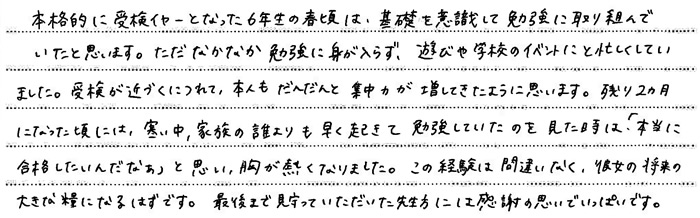 本格的に受検イヤーとなった6年生の春頃は、基礎を意識して勉強に取り組んで
いたと思います。ただなかなか勉強に身が入らず、遊びや学校のイベントにと忙しくしてい
ました。受検が近づくにつれて、本人もだんだんと集中力が増してきたように思います。残り2カ月
になった頃には、寒い中、家族の誰よりも早く起きて勉強していたのを見た時は、「本当に
合格したいんだなぁ」と思い、胸が熱くなりました。この経験は間違いなく、彼女の将来の
大きな糧になるはずです。最後まで見守っていただいた先生方には感謝の思いでいっぱいです。